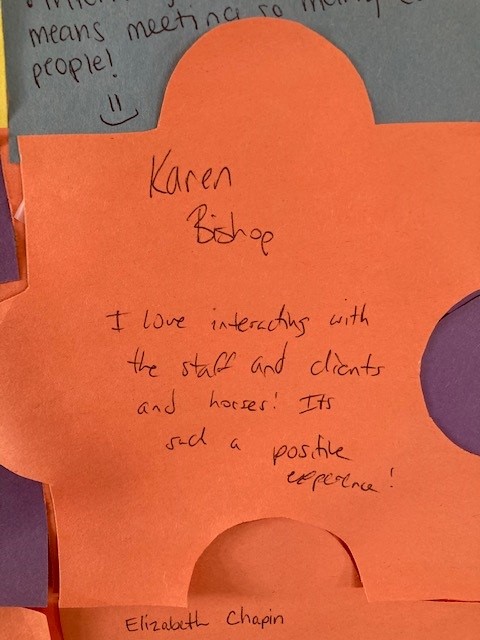 means meeting so many
people!
Karen
Bishop
I love interacting with
the staff and clients
and horses! Its
such a positive
experience!
Elizabeth Chapin